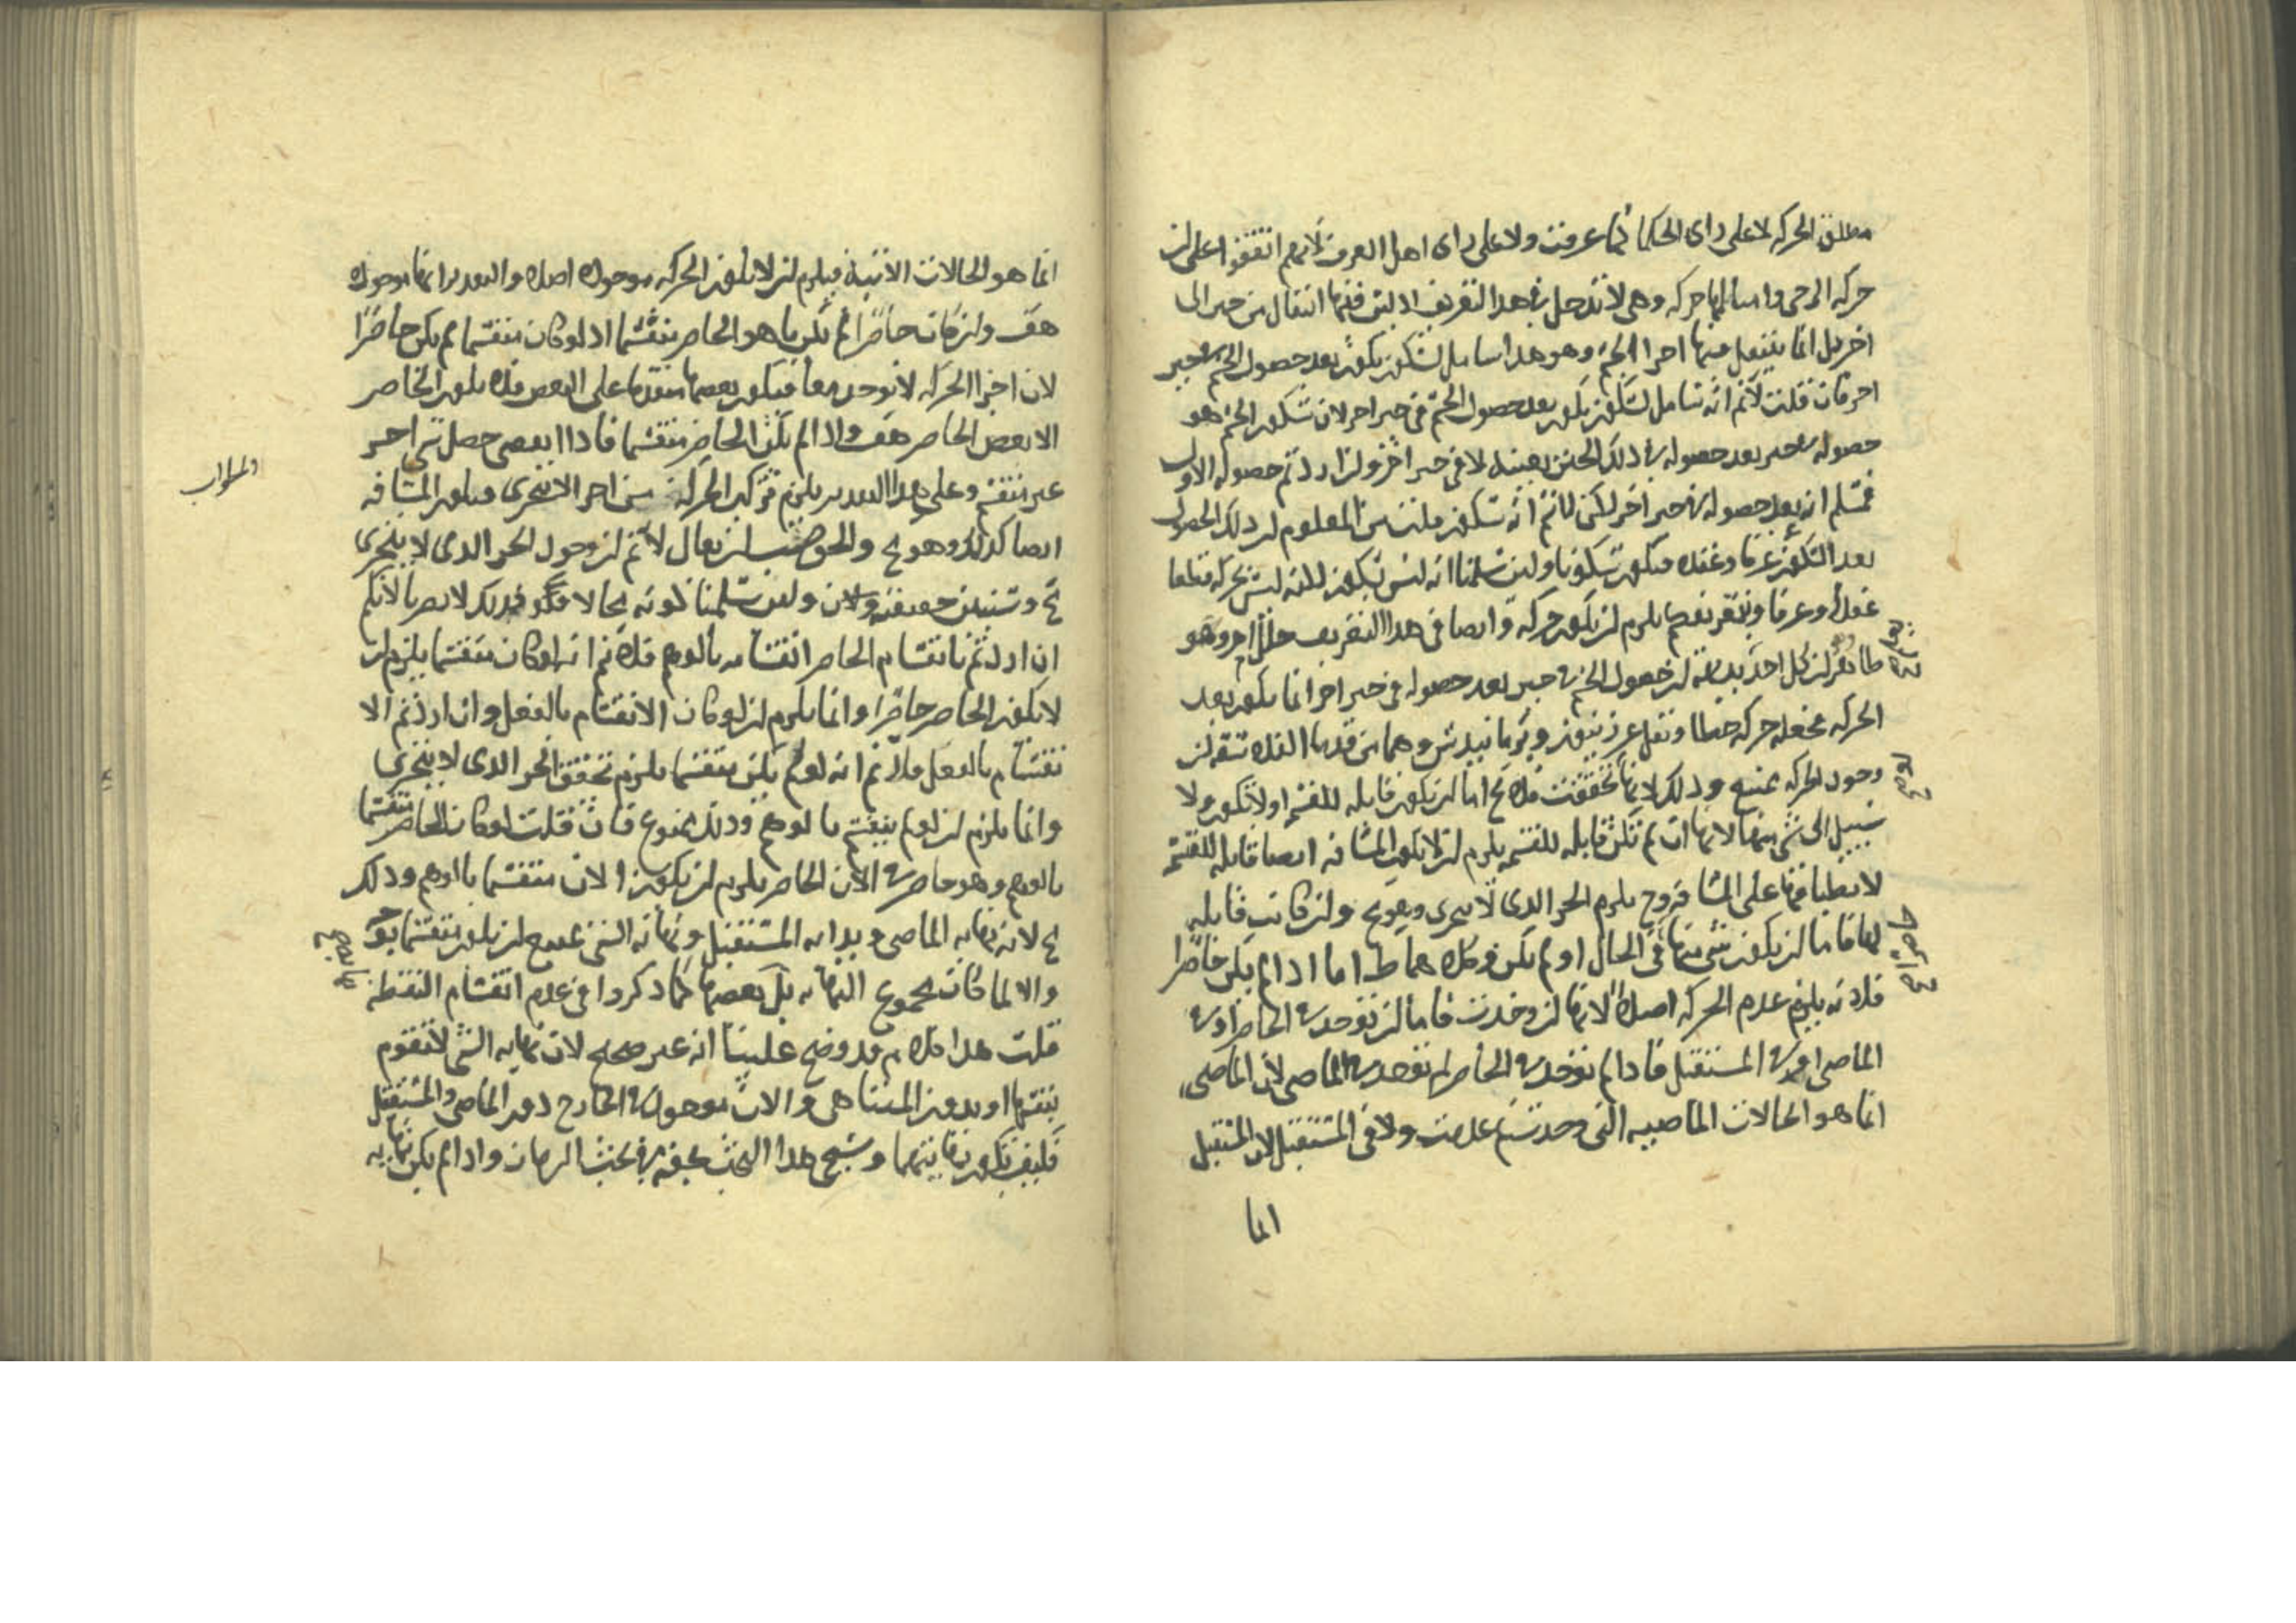 مطلق الحركه لا على راى الحكما لما عرفت ولا على راى اهل العرف لانهم اتفقوا على ان
حركه الرحى وامثالها حركه وهى لا تدخل فى هذا التعريف اذ ليس فيها انتقال من حيز الى
اخر بل انما ينتقل فيها اجزا الجسم وهو هذا شامل لسكون يكون بعد حصول الجسم فى حيز
اخر فان قلت لانم انه شامل لسكون يكون بعد حصول الجسم فى حيز اخر لان سكون الجسم هو
حصوله فى حيز بعد حصوله فى ذلك الحيز بعينه لا فى حيز اخر ولن اردتم حصوله الاول
فمسلم انه بعد حصوله فى حيز اخر لكن لانم انه سكون قلت من المعلوم ان ذلك الحصول
يعد السكون عرفا وعنده فيكون سكونا ولين سلمنا انه ليس بسكون لكنه ليس بحركه قطعا
عقلا وعرفا وبتعريفهم يلزم ان يكون حركه وايضا فى هذا التعريف خلل اخر وهو
ظاهر ان كل احد ان حصول الجسم فى حيز بعد حصوله فى حيز اخر انما يكون بعد
الحركه فجعله حركه خطا ونقل عن زينون وبرمانيدس وهما من قدما الفلاسفه ان
وجود الحركه ممتنع وذلك لانها لو تحققت فلا يخ اما ان يكون قابله للقسمه او لا تكون ولا
سبيل الى شى منهما لانها ان لم تكن قابله للقسمه يلزم ان لا يكون المسافه ايضا قابله للقسمه
لانطباقها على المسافه وح يلزم الجز الذى لا يتجزى وهو مح ولن كانت قابله
لها فاما ان يكون شى منها فى الحال او لم يكن وكلاهما ط اما اذا لم يكن حاضرا
فلانه يلزم عدم الحركه اصلا لانها ان وجدت فاما ان توجد فى الحاضر او فى
الماضى او فى المستقبل فاذا لم توجد فى الحاضر لم توجد فى الماضى لان الماضى
انما هو الحالات الماضيه التى وجدت ثم عدمت ولا فى المستقبل لان المستقبل
انما
انما هو الحالات الاتيه فيلزم ان لا يكون الحركه موجوده اصلا والتقدير انها موجوده
هف ولن كان حاضرا لم يكن ما هو الحاضر منقسما اذ لو كان منقسما لم يكن حاضرا
لان اجزا الحركه لا توجد معا فيكون بعضها متقدما على البعض فلا يكون الحاضر
الا بعض الحاضر هف واذا لم يكن الحاضر منقسما فاذا انقضى حصل شى اخر
غير منقسم وعلى هذا التقدير يلزم تركيب الحركه من اجزا لا تتجزى فيكون المسافه
ايضا كذلك وهو مح والجواب ان يقال لانم ان وجود الجز الذى لا يتجزى
مح وستبين حقيقته الان ولين سلمنا كونه محالا فذلك لا يضرنا لانكم
ان اردتم بانقسام الحاضر انقسامه بالوهم فلانم انه لو كان منقسما يلزم ان
لا يكون الحاضر حاضرا وانما يلزم ان لو كان الانقسام بالفعل وان اردتم الا
نقسام بالفعل فلانم انه لو لم يكن منقسما يلزم تحقق الجز الذى لا يتجزى
وانما يلزم ان لو لم ينقسم بالوهم وذلك ممنوع فان قلت لو كان الحاضر منقسما
بالوهم وهو حاضر فى الان الحاضر يلزم ان يكون الان منقسما بالوهم وذلك
مح لانه نهايه الماضى وبدايه المستقبل ونهايه الشى ممتنع ان يكون منقسما
والا لما كان مجموع النهايه بل بعضها كما ذكروا فى عدم انقسام النقطه
قلت هذا كلام قد وضح علينا انه غير صحيح لان نهايه الشى لا تقوم
بنفسها او بدون المتناهى والان موجود فى الخارج دون الماضى والمستقبل
فكيف يكون نهايتهما وسيجى هذا البحث بحقه فى بحث الزمان واذا لم يكن نهايه